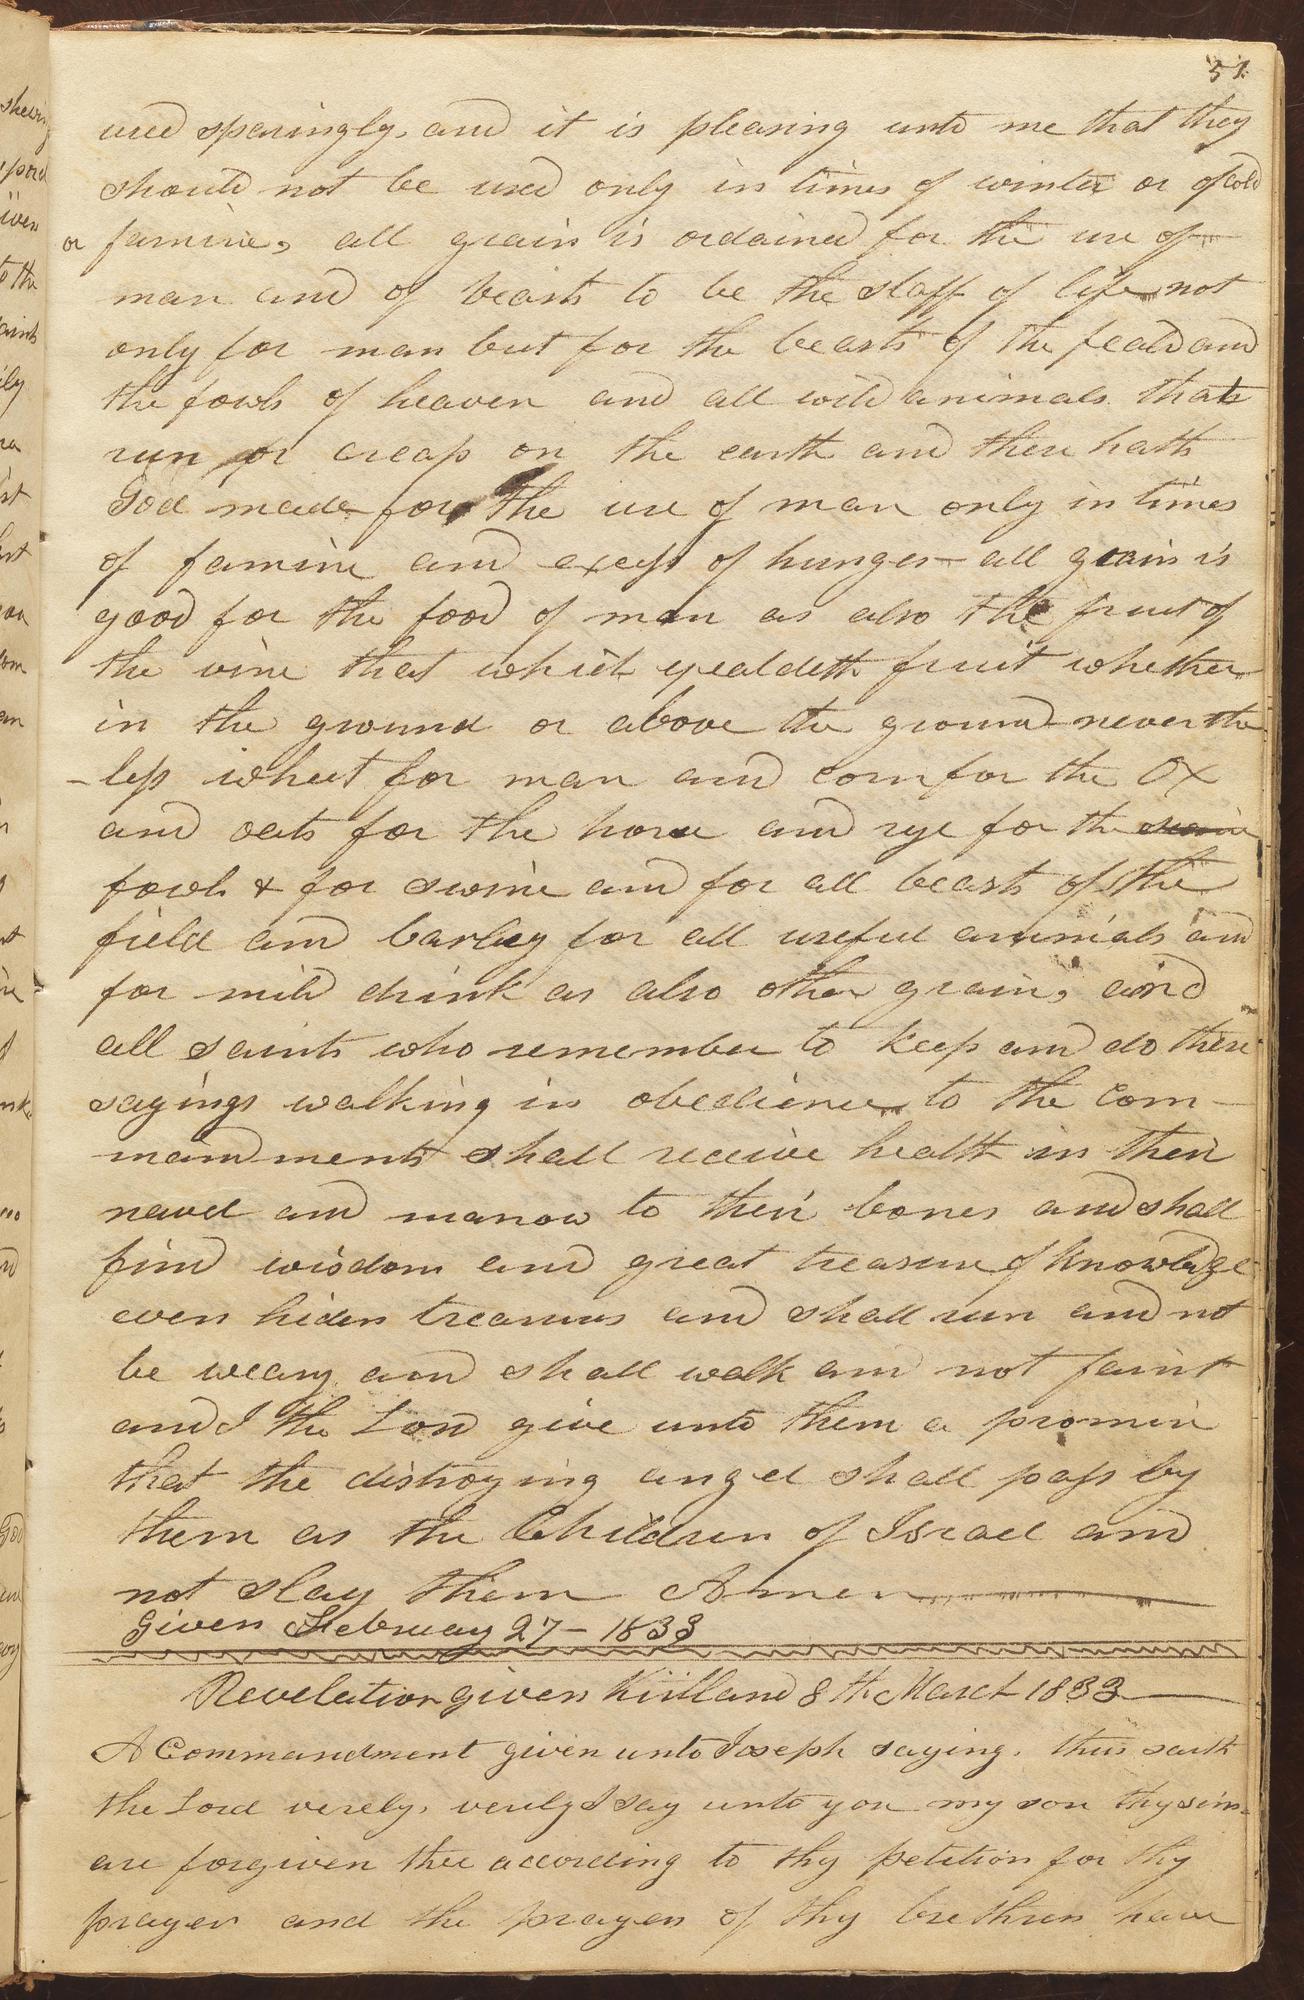 51
used sparingly, and it is pleasing unto me that they
should not be used only in times of winter or of cold
or famine, all grain is ordained for the use of
man and of beasts to be the staff of life not
only for man but for the beasts of the feald and
the fowls of heaven and all wild animals that
run or creap on the earth and these hath
God made for the use of man only in times
of famine and excess of hunger all grain is
good for the food of man as also the fruit of
the vine that which yealdeth fruit whether
in the ground or above the ground never the
-less wheat for man and corn for the Ox
and oats for the horse and rye for the swine
fowls & for swine and for all beasts of the
field and barley for all useful animals and
for mild drink as also other grain, and
all saints who remember to keep and do these
sayings walking in obedience to the com-
mandments shall receive health in their
navel and marrow to their bones and shall
find wisdom and great treasure of knowledge
even hiden treasures and shall run and not
be weary and shall walk and not faint
and I the Lord give unto them a promise
that the distroying angel shall pass by
them as the Children of Israel and
not slay them Amen
Given February 27 - 1833
Revelation given Kirtland 8th March 1833
A Commandment given unto Joseph saying. thus saith
the Lord verely, verily I say unto you my son thy sins
are forgiven thee according to thy petition for thy
prayer and the prayers of thy brethren have